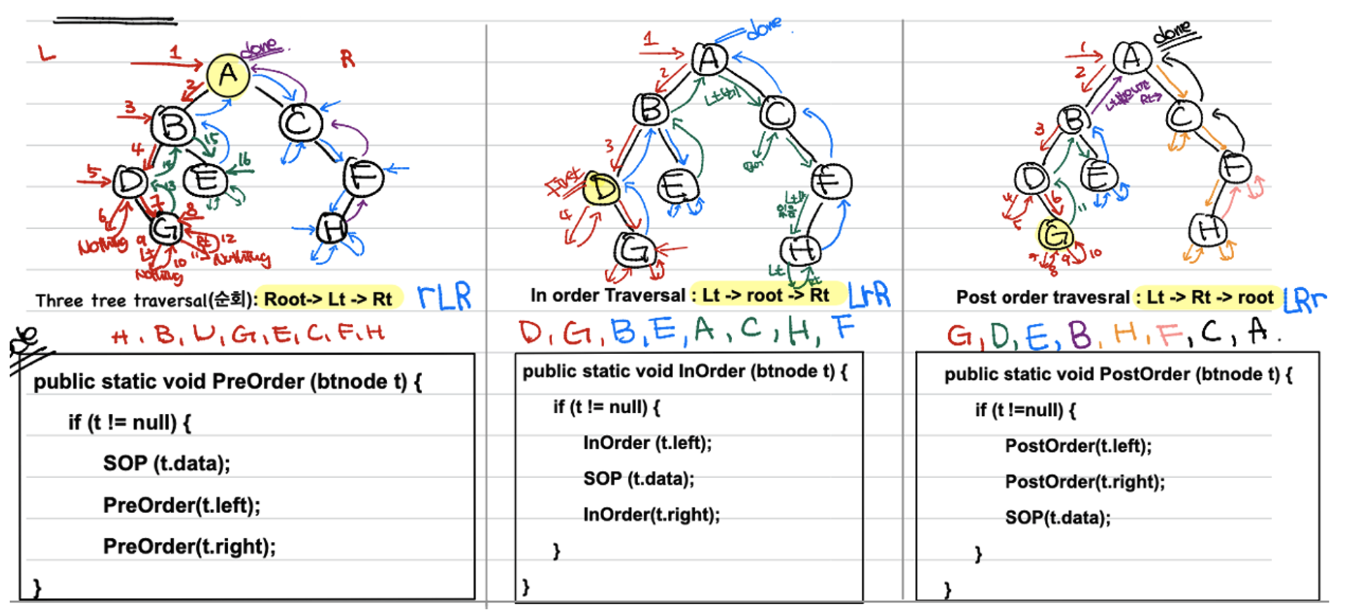 L
R
done.
1
2
3
4
5
6
7
8
9
10
11
12
13
14
15
16
A
B
C
D
E
F
G
H
Nothing
Lt
Nothing
Rt
Nothing
Three tree traversal(순회): Root-> Lt -> Rt
rLR
A, B, D, G, E, C, F, H
public static void PreOrder (btnode t) {
if (t != null) {
SOP (t.data);
PreOrder(t.left);
PreOrder(t.right);
}
done.
1
2
3
4
First
A
B
C
D
E
F
G
H
Lt
Lt
있음
Lt
Rt
In order Traversal : Lt -> root -> Rt
LrR
D, G, B, E, A, C, H, F
public static void InOrder (btnode t) {
if (t != null) {
InOrder (t.left);
SOP (t.data);
InOrder(t.right);
}
}
done
1
2
3
4
5
6
7
8
9
10
11
A
B
C
D
E
F
G
H
Rt
Post order travesral : Lt -> Rt -> root
LRr
G, D, E, B, H, F, C, A.
public static void PostOrder (btnode t) {
if (t !=null) {
PostOrder(t.left);
PostOrder(t.right);
SOP(t.data);
}
}